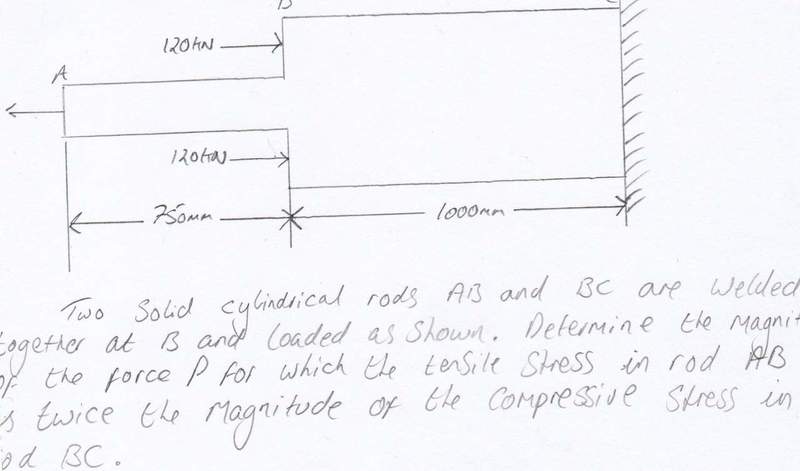 B
120kN
A
120kN
750mm
1000mm
Two Solid cylindrical rods AB and BC are Welded
together at B and Loaded as Shown. Determine the Magnit
of the force P for which the tensile Stress in rod AB
is twice the Magnitude of the Compressive Stress in
rod BC.